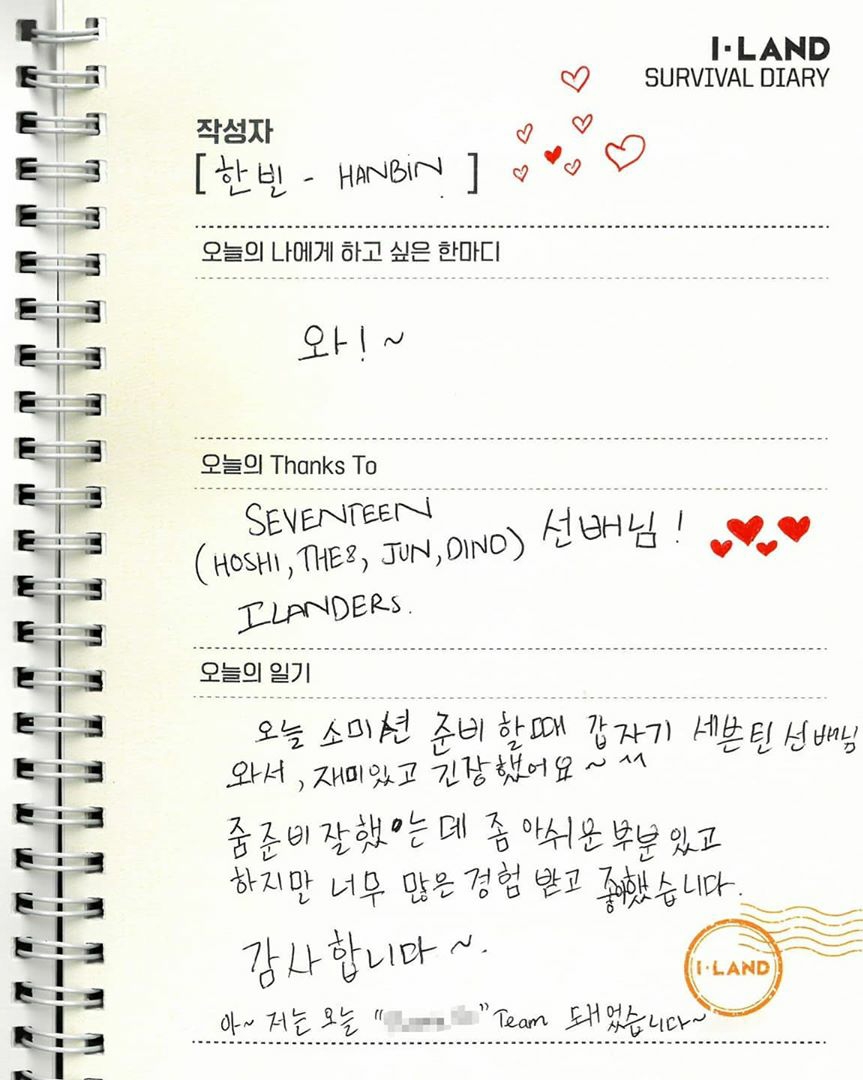 I·LAND
SURVIVAL DIARY
작성자
[ 한빈 - HANBIN ]
오늘의 나에게 하고 싶은 한마디
와! ~
오늘의 Thanks To
SEVENTEEN
(HOSHI, THE8, JUN, DINO) 선배님!
ILANDERS.
오늘의 일기
오늘 소미션 준비 할때 갑자기 세븐틴 선배님
와서, 재미있고 긴장했어요 ~ ^^
춤 준비 잘했는데 좀 아쉬운 부분 있고
하지말 너무 많은 경험 받고 좋아했습니다.
감사합니다 ~.
I·LAND
아~ 저는 오늘 " " Team 돼었습니다~